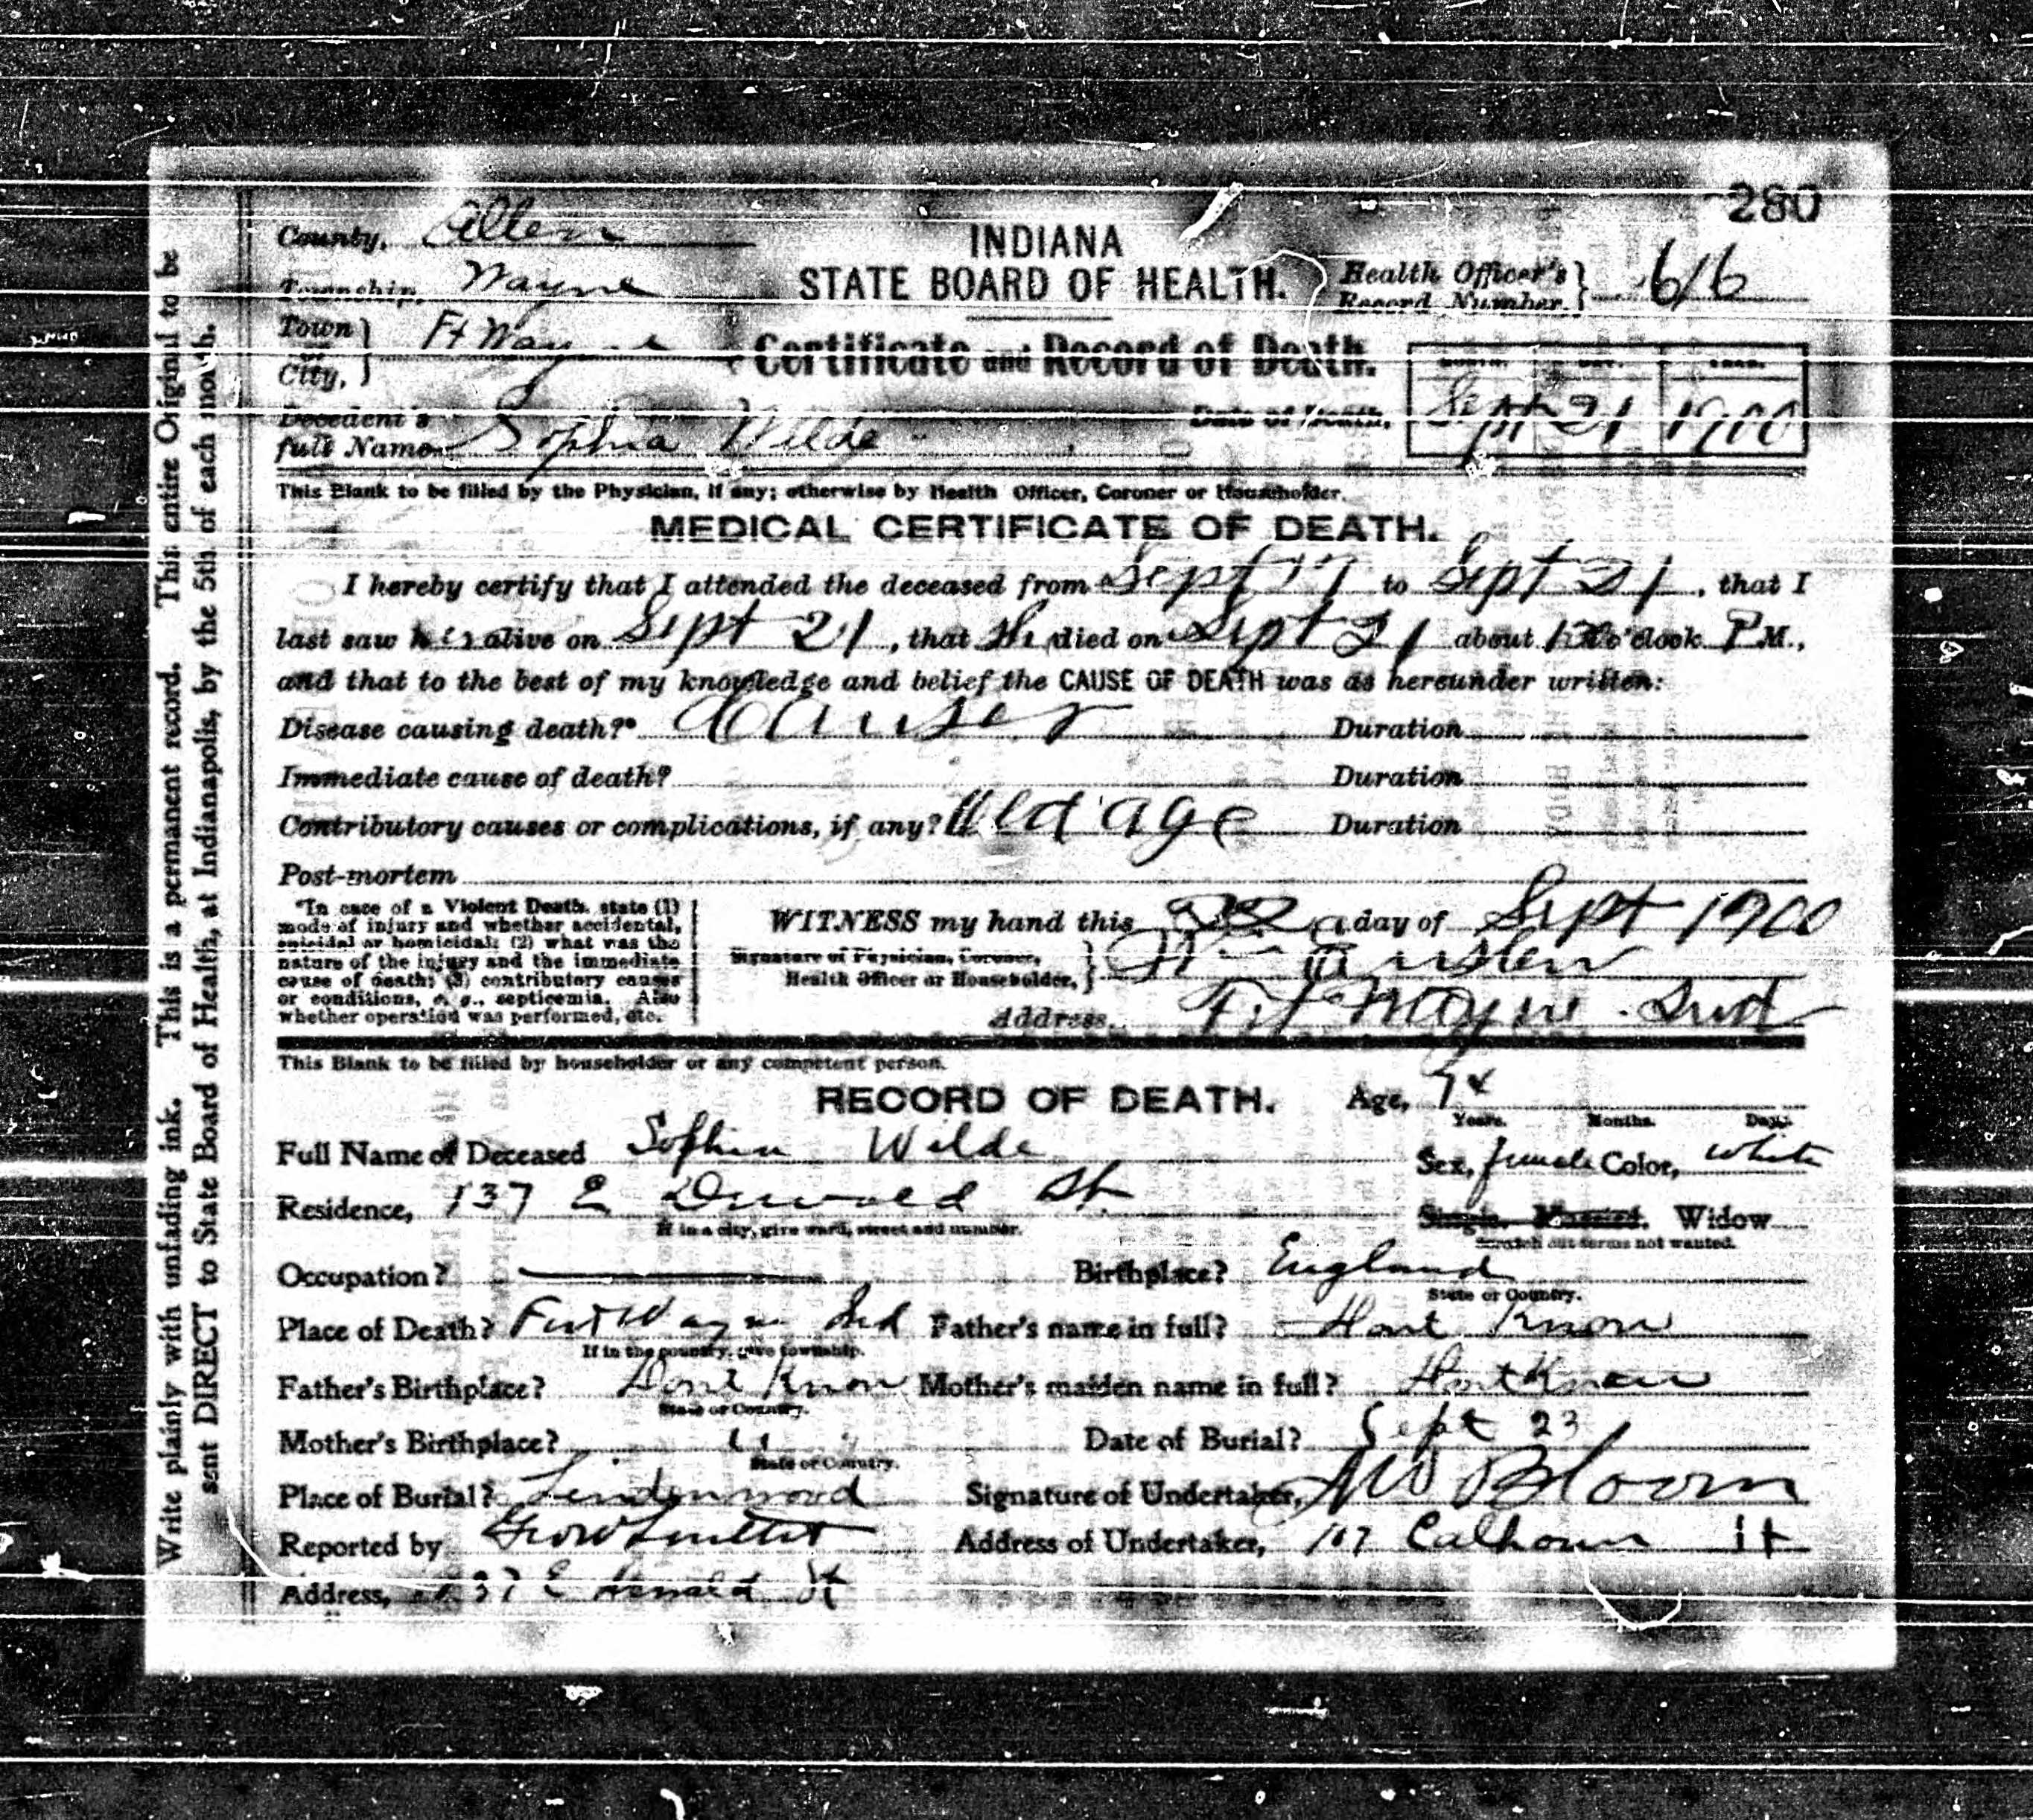 280
County, Allen
INDIANA
STATE BOARD OF HEALTH.
Health Officer's Record Number. 616
Township, Wayne
Town or City, Ft Wayne
Certificate and Record of Death.
MONTH. DAY. YEAR.
Decedent's full Name Sophia Wilde
Date of Death, Sept 21 1900
This Blank to be filled by the Physician, if any; otherwise by Health Officer, Coroner or Householder.
MEDICAL CERTIFICATE OF DEATH.
I hereby certify that I attended the deceased from Sept 17 to Sept 21, that I
last saw her alive on Sept 21, that She died on Sept 21 about o'clock P M.,
and that to the best of my knowledge and belief the CAUSE OF DEATH was as hereunder written:
Disease causing death?* Cancer Duration
Immediate cause of death? Duration
Contributory causes or complications, if any? Old age Duration
Post-mortem
*In case of a Violent Death, state (1)
mode of injury and whether accidental,
suicidal or homicidal; (2) what was the
nature of the injury and the immediate
cause of death; (3) contributory causes
or conditions, e. g., septicemia. Also
whether operation was performed, etc.
WITNESS my hand this 22 day of Sept 1900
Signature of Physician, Coroner,
Health Officer or Householder,
Address, Ft Wayne Ind
This Blank to be filled by householder or any competent person.
RECORD OF DEATH. Age,
Years. Months. Days.
Full Name of Deceased Sophia Wilde
Sex, female Color, white
Residence, 137 E St.
If in a city, give ward, street and number.
Single. Married. Widow
Scratch out terms not wanted.
Occupation? Birthplace? England
State or Country.
Place of Death? Fort Wayne Ind Father's name in full? Dont Know
If in the country, give township.
Father's Birthplace? Dont Know Mother's maiden name in full? Dont Know
State or Country.
Mother's Birthplace? " Date of Burial? Sept 23
State or Country.
Place of Burial? Lindenwood Signature of Undertaker, Bloom
Reported by Address of Undertaker, 107 Calhoun St
Address, 137 E St
Write plainly with unfading ink. This is a permanent record. This entire Original to be
sent DIRECT to State Board of Health, at Indianapolis, by the 5th of each month.